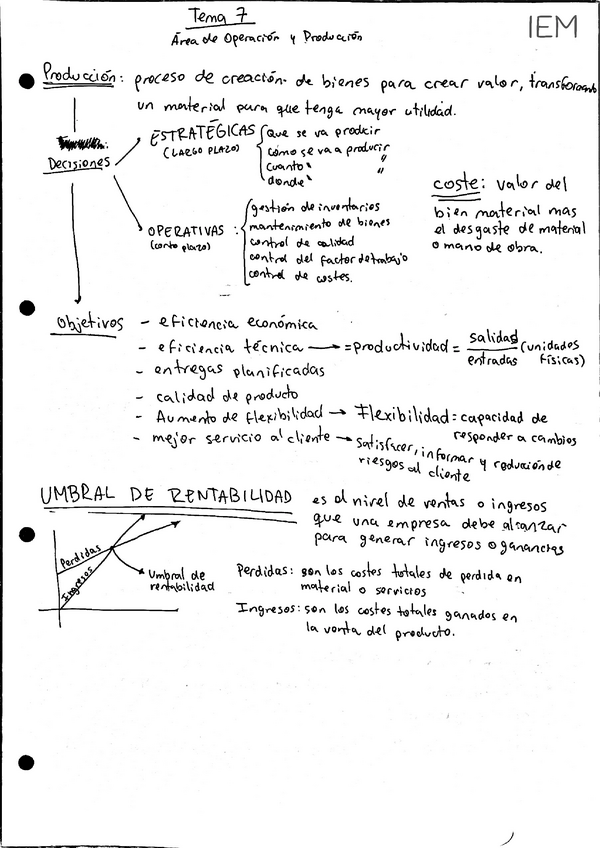 Tema 7
IEM
Área de Operación y Producción
Producción: proceso de creación de bienes para crear valor, transformando
un material para que tenga mayor utilidad.
Decisiones
ESTRATÉGICAS
(LARGO PLAZO)
que se va producir
cómo se va a producir
cuanto " "
donde " "
OPERATIVAS :
(corto plazo)
gestión de inventarios
mantenimiento de bienes
control de calidad
control del factor de trabajo
control de costes.
coste: valor del
bien material mas
el desgaste de material
o mano de obra.
Objetivos
- eficiencia económica
- eficiencia técnica → = productividad = salidas / entradas (unidades físicas)
- entregas planificadas
- calidad de producto
- Aumento de flexibilidad → Flexibilidad = capacidad de
responder a cambios
- mejor servicio al cliente → Satisfacer, informar y reducción de
riesgos al cliente
UMBRAL DE RENTABILIDAD
es el nivel de ventas o ingresos
que una empresa debe alcanzar
para generar ingresos o ganancias
Perdidas
Ingresos
Umbral de
rentabilidad
Perdidas: son los costes totales de perdida en
material o servicios
Ingresos: son los costes totales ganados en
la venta del producto.